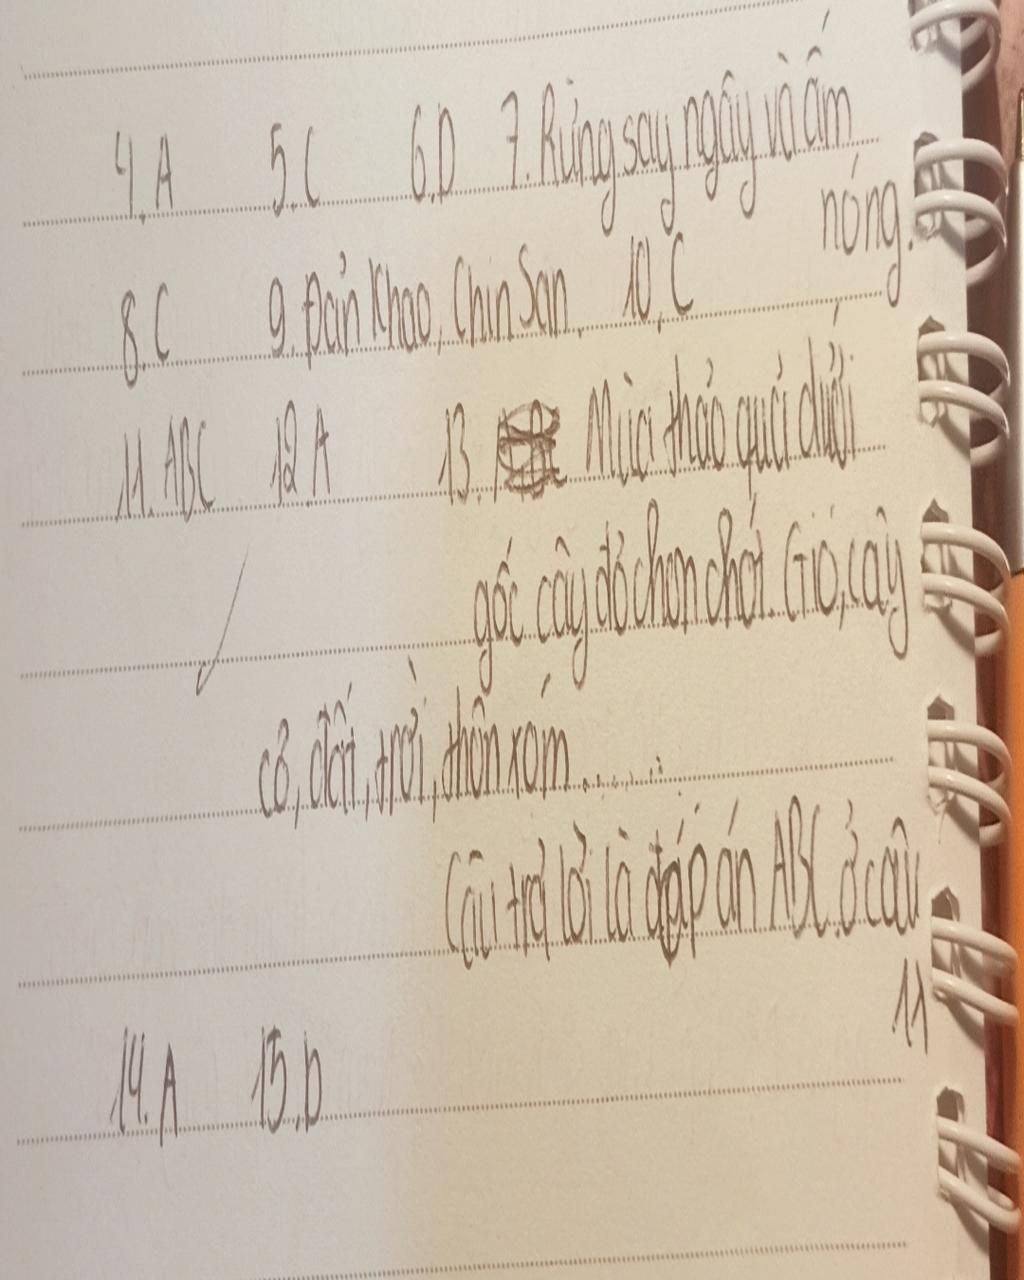 4.A 5.C 6.D 7. Rừng say ngây và ấm
nóng.
8.C 9. Đản Khao, Chin San. 10.C
11. ABC 12 A 13. Mùa thảo quả dưới
gốc cây đỏ chon chót. Gió, cây
cỏ, đất, trời, thôn xóm.......
Câu trả lời là đáp án ABC ở câu
11
14. A 15. D